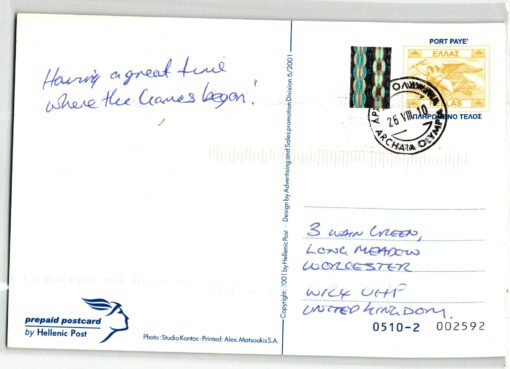 Having a great time
where the Games began!
PORT PAYE'
ΕΛΛΑΣ
HELLAS
ΠΛΗΡΩΜΕΝΟ ΤΕΛΟΣ
ΑΡΧΑΙΑ ΟΛΥΜΠΙΑ
26 VIII 10
ARCHAIA OLYMPIA
Copyright: 2001 by Hellenic Post - Design by Advertising and Sales promotion Division 6/2001
3 WAIN GREEN,
LONG MEADOW
WORCESTER
UNITED KINGDOM.
prepaid postcard
by Hellenic Post
Photo: Studio Kontos - Printed: Alex. Matsoukis S.A.
0510-2 002592